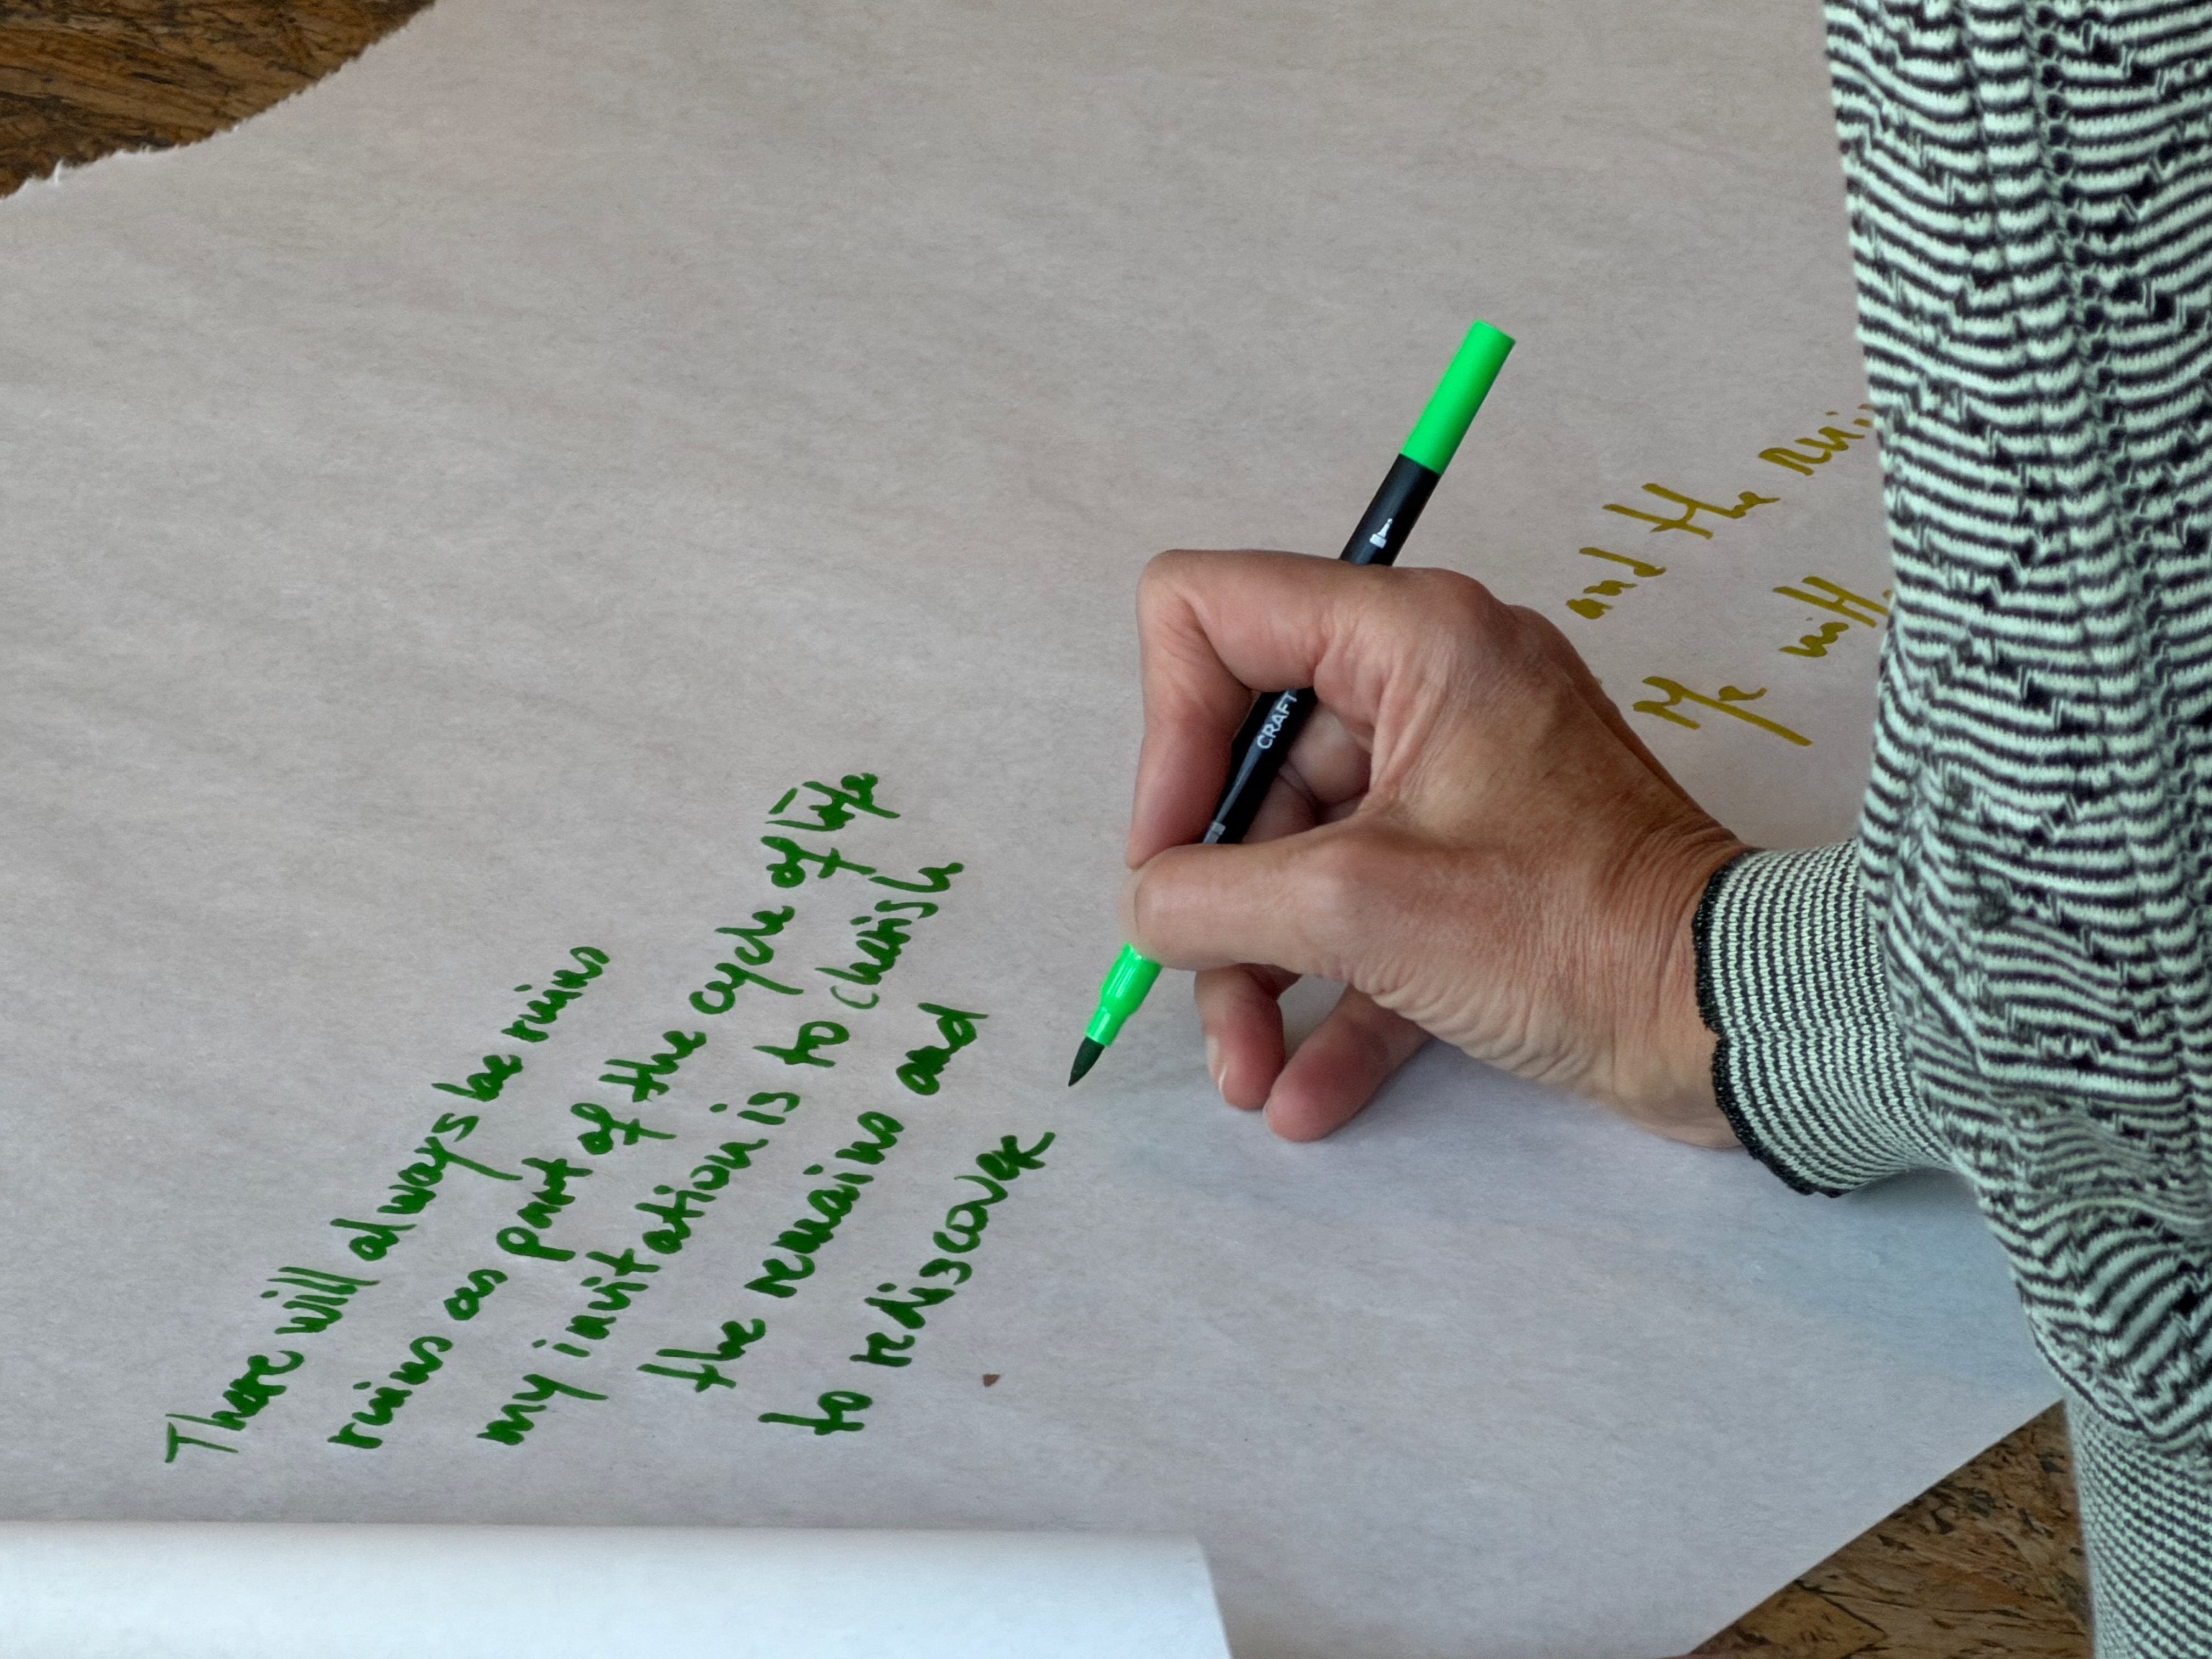 There will always be ruins
ruins as part of the cycle of life
my invitation is to cherish
the remains and
to rediscover
CRAFT
and the